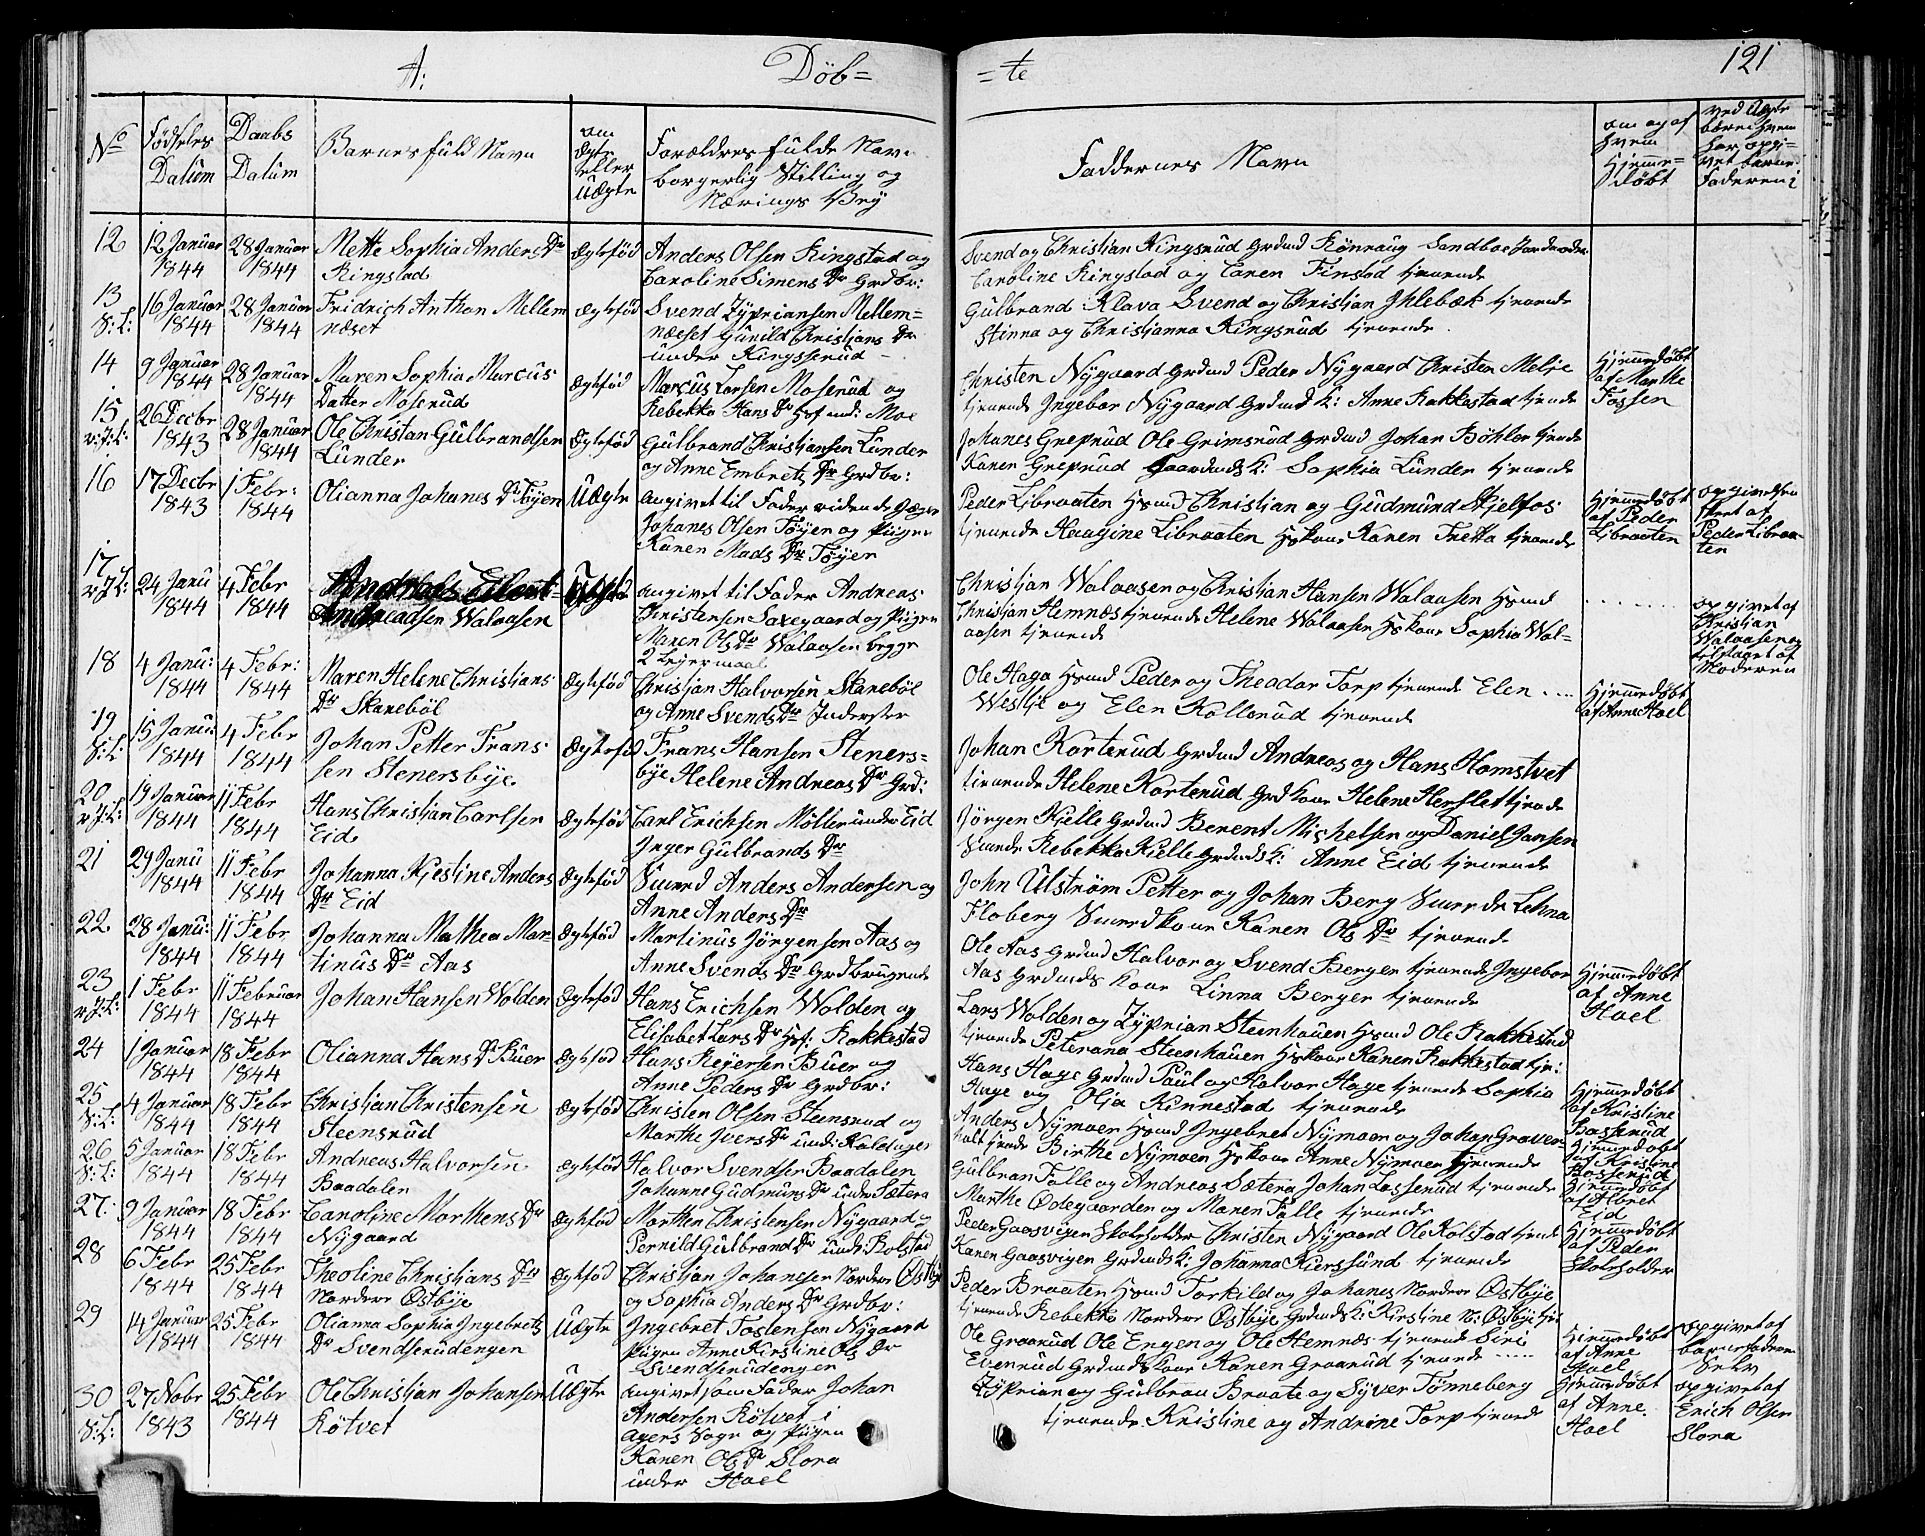 A:
Döb=
=te
121
No
Fødseles Datum
Daabs Datum
Barnes fuld Navn
om Ægte eller Uægte
Forældres fulde Nav.
borgerlig Stilling og
Nærings Bry
Faddernes Navn
om og af hvem Hjemme=døbt
12
12 Januar 1844
28 Januar 1844
Mette Sophia Anders Dr
Ringstad
Ægtefød
Anders Olsen Ringstad og
Caroline Simens Dr Grdbr:
Svend og Christian Kingsrud Grdmd Rønnaug Sandboe
Caroline Ringstad og Caren Finstad tjenende
13
S:L:
16 Januar 1844
28 Januar 1844
Fridrich Anthon Mellem
næset
Ægtefød
Svend Zypriansen Mellem=
næset Gunild Christians Dr
under Kingsserud
Gulbrand Klava Svend og Christjan Ihlebæk tjenende
Stinna og Christjanna Kingsrud tjenende.
14
9 Januar 1844
28 Januar 1844
Maren Sophia Marcus
Datter Moserud
Ægtefød
Marcus Larsen Moserud og
Rebekka Hans Dr Hsf und: Moe
Christen Nygaard Grdmd Peder Nygaard Christen Melje
tjenende Ingebor Nygaard Grdmd K: Anne Rakkestad tjende
Hjemmedøbt
af Marthe
Fossen
15
v:F:L:
26 Decbr 1843
28 Januar 1844
Ole Christan Gulbrandsen
Lunder
Ægtefød
Gulbrand Christjansen Lunder
og Anne Embrets Dr Grdbr:
Johanes Greprud Ole Grimsrud Grdmd Johan Bøhler tjende
Karen Greprud Gaardmds K: Sophia Lunder tjenende
16
17 Decbr 1843
1 Febr: 1844
Olianna Johanes Dr Tøyen
Uægte
angivet til Fader
Johanes Olsen Tøyen og Pigen
Karen Mads Dr Tøyen
Peder Libraaten Hsmd Christjan og Gudmund Skjelfos
tjenende Haagine Libraaten Hskone Karen Tretta tjenende
Hjemmedøbt
af Peder
Libraaten
opgivelsen
skeet af
Peder Libraa-
ten
17
24 Janu 1844
4 Febr 1844
Andreas
Andreadsen Walaasen
angivet til Fader Andreas
Christensen Saxegaard og Pigen
Maren Ols Dr Walaasen begge
2 Lejermaal
Christjan Walaasen og Christjan Hansen Walaasen Hsmd
Christjan Hemnæs tjenende Helene Walaasen Hskone Sophia Wal=
aasen tjenende
opgivet af
Christian
Walaasen og
Moderen
18
4 Janu: 1844
4 Febr: 1844
Maren Helene Christjans
Dr Skanebøl
Ægtefød
Christjan Halvorsen Skanebøl
og Anne Svends Dr Inderster
Ole Haga Hsmd Peder og Theodor Torp tjenende Elen
Westje og Elen Kollerud tjenende
Hjemmedøbt
af Anne Hoel
19
S:L:
15 Janu: 1844
4 Febr 1844
Johan Petter Frans
sen Stenersbye
Ægtefød
Frans Hansen Steners=
bye Helene Andreas Dr Grd:
Johan Korterud Grdmd Andreas og Hans Homstvet
tjenende Helene Korterud Grdkone Helene Herslet tjende
20
19 Januar 1844
11 Febr 1844
Hans Christjan Carlsen
Eid
Ægtefød
Carl Erichsen Møller under Eid
Inger Gulbrands Dr
Jørgen Kjelle Grdmd Berent Michelsen og Daniel Jansen
Svende Rebekka Kjelle Grdmds K: Anne Eid tjenende
21
29 Janu 1844
11 Febr 1844
Johanna Kjestine Anders
Dr Eid
Ægtefød
Smed Anders Andersen og
Anne Anders Dr
John Ulstrøm Petter og Johan Berg Svende Lehna
Floberg Smedkone Karen Ols Dr tjenende
22
28 Janu: 1844
11 Febr 1844
Johanna Mathea Mar=
tinus Dr Aas
Ægtefød
Martinus Jørgensen Aas og
Anne Svends Dr Grdbrugende
Ole Aas Grdmd Halvor og Svend Berger tjenende Ingebor
Aas Grdmds Kone Linna Berger tjenende
Hjemmedøbt
af Anne
Hoel
23
1 Febr 1844
11 Februar 1844
Johan Hansen Wolden
Ægtefød
Hans Erichsen Wolden og
Elisabet Lars Dr Hsf: Rakkestad
Lars Wolden og Zyprian Steenhauen Hsmd Ole Rakkestad
tjenende Peterana Steenhauen Hskone Karen Rakkestad tje:
24
1 Januar 1844
18 Febr 1844
Olianna Hans Dr Buer
Ægtefød
Hans Reyersen Buer og
Anne Peders Dr Grdbr:
Hans Hage Grdmd Paul og Halvor Hage tjenende Sophia
Hage og Olja Kinnestad tjenende
25
S:L:
4 Januar 1844
18 Febr 1844
Christjan Christensen
Steensrud
Ægtefød
Christen Olsen Steensrud og
Marthe Ivers Dr und:
Anders Nymoen Hsmd Ingebret Nymoen og Johan Graven
holt tjende Birthe Nymoen Hskone Anne Nymoen tjenende
Hjemmedøbt
af Kristine
Basserud
26
S:L:
5 Januar 1844
18 Febr 1844
Andreas Halvorsen
Baadalen
Ægtefød
Halvor Svendsen Baadalen
Johanne Gudmunds Dr under Sætera
Gulbran Falle og Andreas Sætera Johan Losserud tjenende
Marthe Ødegaarden og Maren Falle tjenende
Hjemmedøbt
af Kristine
Basserud
27:
9 Januar 1844
18 Febr 1844
Caroline Morthens Dr
Nygaard
Ægtefød
Morthen Christensen Nygaard og
Pernild Gulbrands Dr und: Kolstad
Peder Gaasvigen Skoleholder Christen Nygaard Ole Kolstad tjende
Karen Gaasvigen Grdmds K: Johanna Kierssund tjenende
Hjemmedøbt
af Peder
Skoleholder
28
6 Febr 1844
25 Febr 1844
Theoline Christjans Dr
Nordere Østbye
Ægtefød
Christjan Johanesen Nordere Østbye
og Sophia Anders Dr Grdbr:
Peder Braaten Hsmd Torkild og Johanes Nordere Østbye
tjenende Rebekka Nordere Østbye Grdmds K: Kirstine N: Østbye tje
29
14 Januar 1844
25 Febr 1844
Olianna Sophia Ingebrets
Dr Svendserudengen
Uægte
Ingebret Tostensen Nygaard
Pigen Anne Kirstine Ols Dr
Svendserudengen
Ole Graarud Ole Engen og Ole Hemnæs tjenende Siri
Evenrud Grdmds Kone Karen Graarud tjenende
Hjemmedøbt
af Anne
Hoel
opgivet af
barnefaderen
Selv
30
S:L:
27 Nobr 1843
25 Febr 1844
Ole Christjan Johansen
Køtvet
Uægte
angivet som Fader Johan
Andersen Køtvet i
Agers Sogn og Pigen
Karen Ols Dr Slora
under Hoel
Zyprian og Gulbran Braate og Syver Tønneberg
tjenende Kristine og Andrine Torp tjenende
Hjemmedøbt
af Anne
Hoel
opgivet af
Erich Olsen
Slora